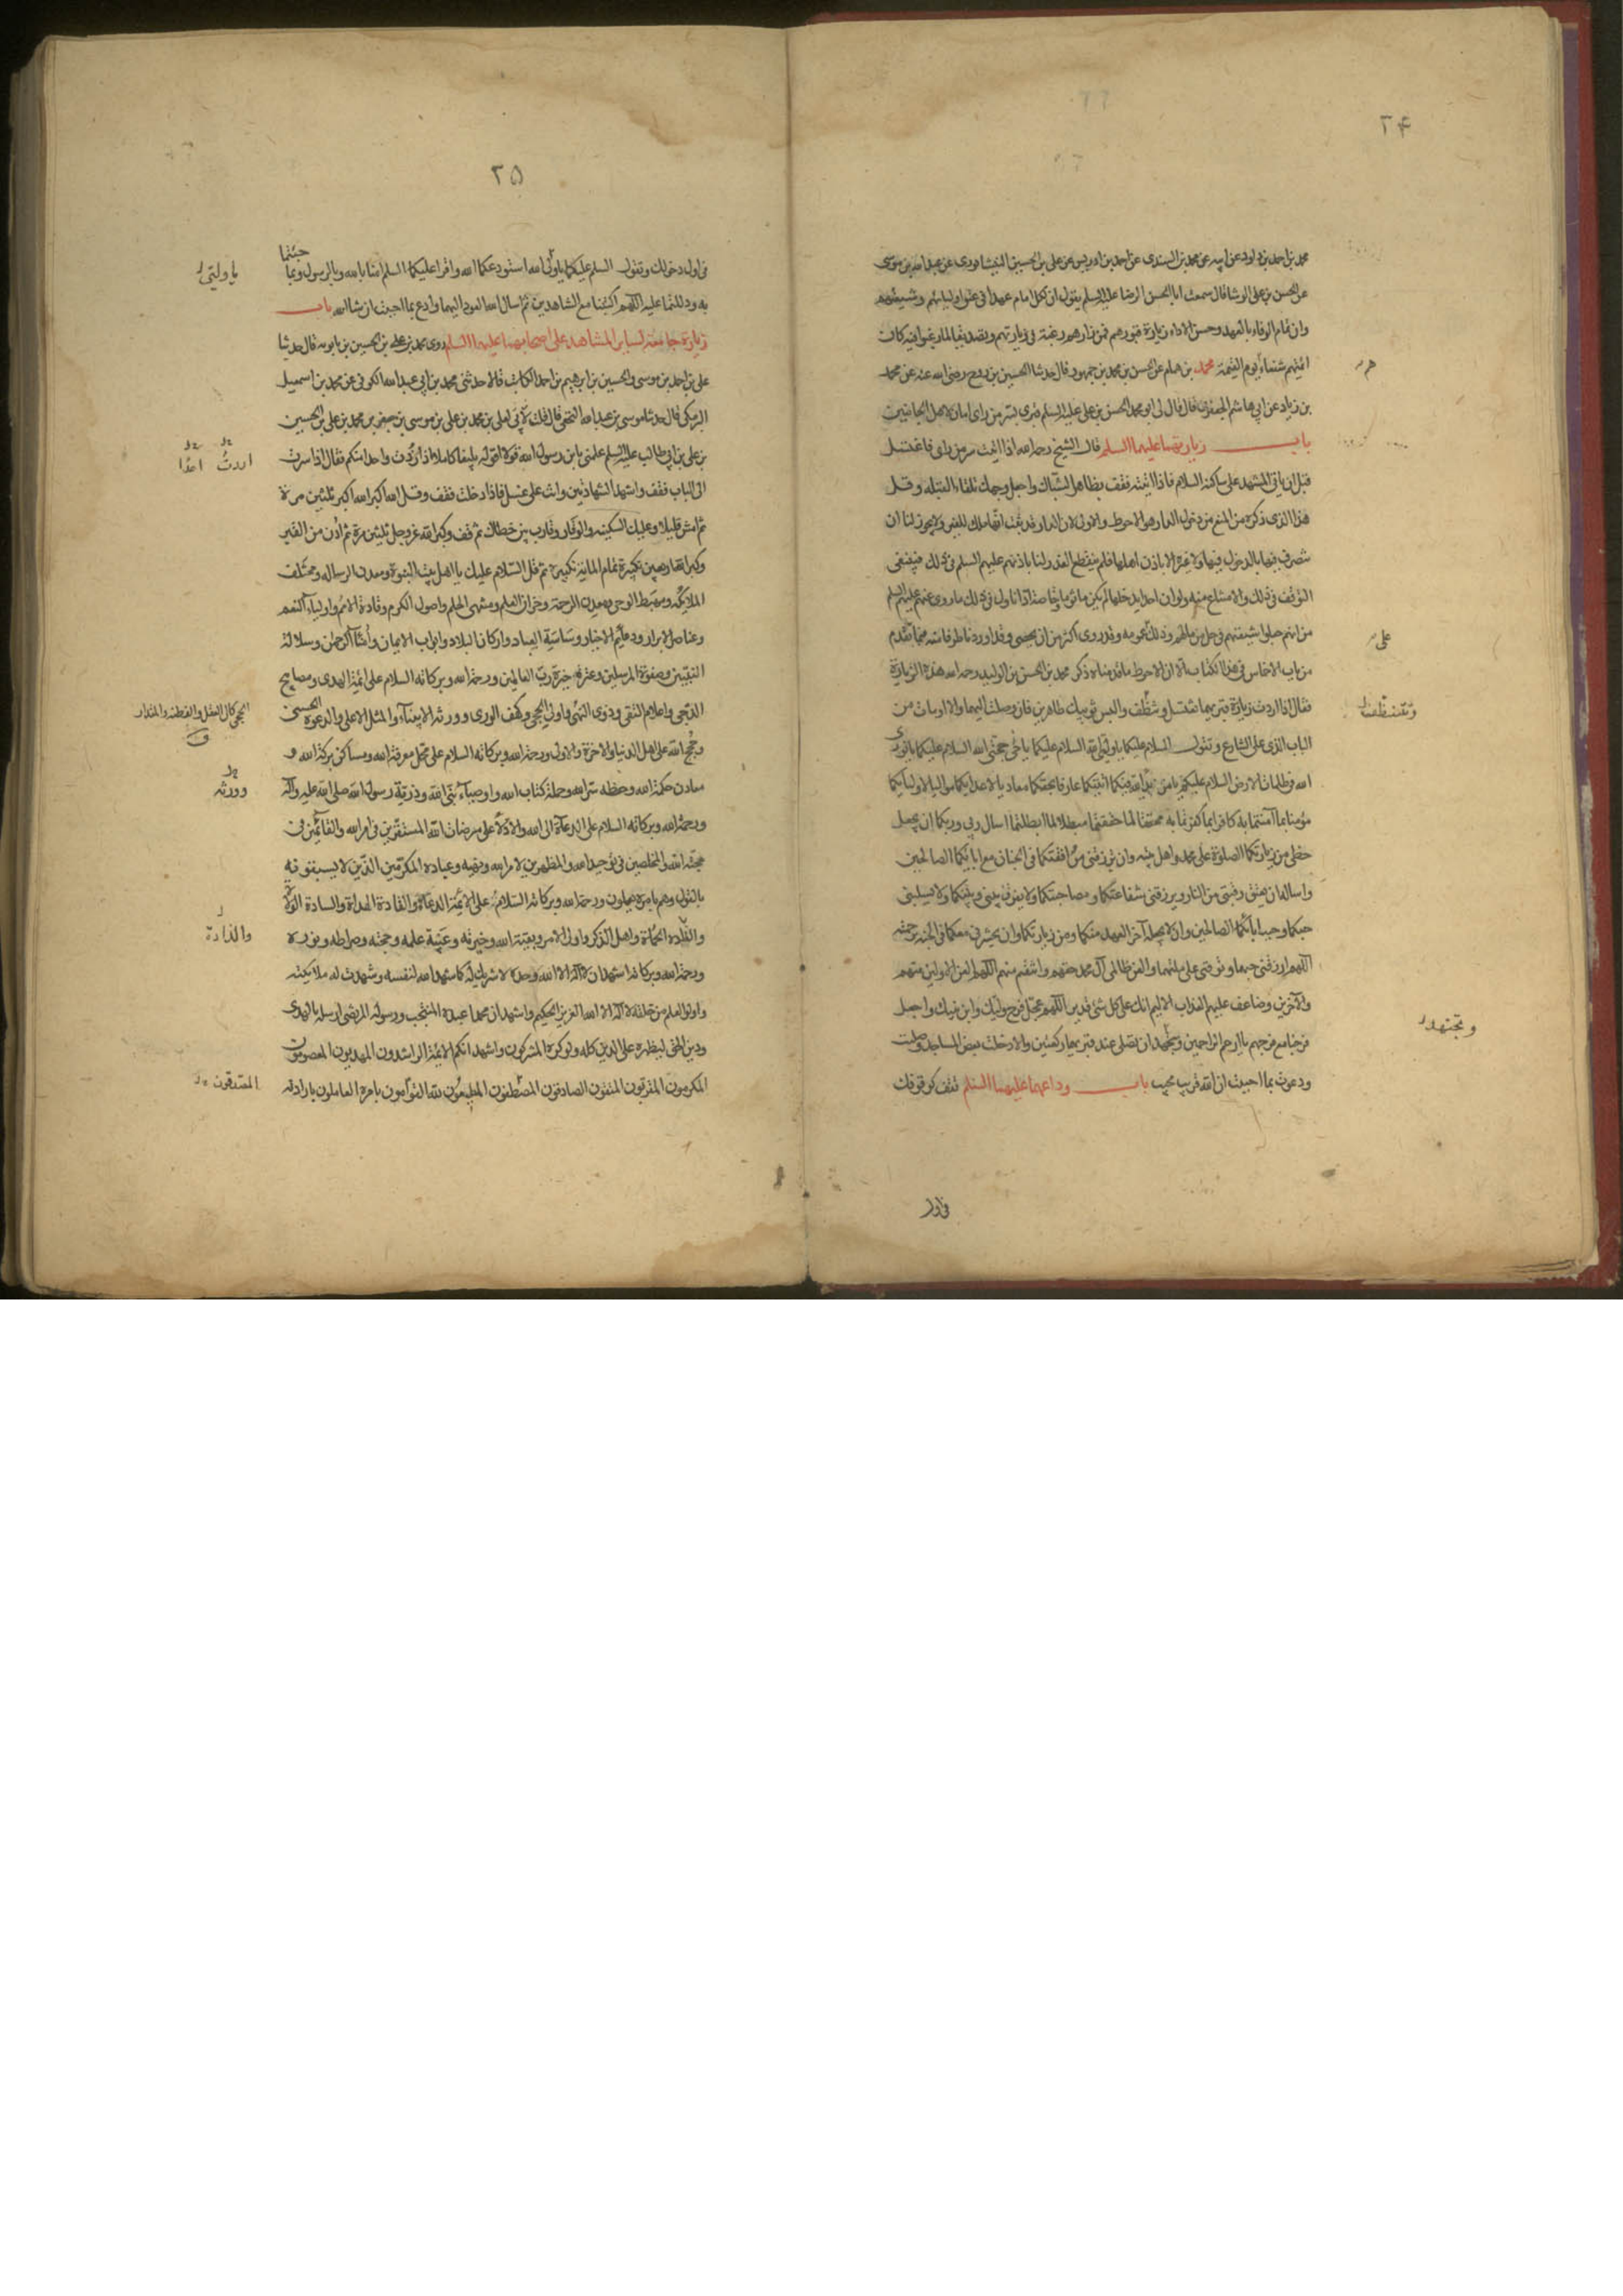 ٢۴
محمد بن احمد بن داود عن ابيه عن محمد بن السندى عن احمد بن ادريس عن على بن الحسين النيشابورى عن عبد الله بن موسى
عن الحسن بن على الوشا قال سمعت ابا الحسن الرضا عليه السلم يقول ان لكل امام عهدا فى عنق اوليائهم وشيعتهم
وان تمام الوفاء بالعهد وحسن الاداء زيارة قبورهم فمن زارهم رغبة فى زيارتهم وتصديقا لما رغبوا فيه كانت
ائمتهم شفعاءه يوم القيمة محمد بن همام عن الحسن بن محمد بن جمهور قال حدثنا الحسين بن روح رضى الله عنه عن محمد
بن زياد عن ابى هاشم الجعفرى قال قال لى ابو محمد الحسن بن على عليه السلم قبرى بسر من راى امان لاهل الجانبين
باب زيارتهما عليهما السلم قال الشيخ رحمه الله اذا اتيت سر من راى فاغتسل
قبل ان ياتى المشهد على ساكنه السلام فاذا اتيته فقف بظاهر الشباك واجعل وجهك تلقاء القبلة وقل
هذا الذى ذكره من المنع من دخول الدار هو الاحوط والاولى لان الدار قد ثبت انها ملك للغير ولا يجوز لنا ان
نتصرف فيها بالدخول فيها ولا غيره الا باذن اهلها فلم ينقطع العذر لنا باذنهم عليهم السلم فى ذلك فينبغى
التوقف فى ذلك والامتناع منه ولو ان احدا يدخلها لم يكن ماثوما وخاصة اذا تاول فى ذلك ما روى عنهم عليهم السلم
من انهم جعلوا شيعتهم فى حل من مالهم وذلك على عمومه وقد روى اكثر من ان يحصى وقد اوردنا طرفا منه فيما تقدم
من باب الاخماس فى هذا الكتاب الا ان الاحوط ما قدمناه ذكر محمد بن الحسن بن الوليد رحمه الله هذه الزيارة
فقال اذا اردت زيارة قبريهما تغتسل وتنظف والبس ثوبيك طاهرين فان وصلت اليهما والا اومات من
الباب الذى على الشارع وتقول السلام عليكما يا وليى الله السلام عليكما يا حجتى الله السلام عليكما يا نورى
الله فى ظلمات الارض السلام عليكما يا من بدا لله فيكما اتيتكما عارفا بحقكما معاديا لاعدائكما مواليا لاوليائكما
مؤمنا بما آمنتما به كافرا بما كفرتما به محققا لما حققتما مبطلا لما ابطلتما اسال ربى وربكما ان يجعل
حظى من زيارتكما الصلوة على محمد واهل بيته وان يرزقنى مرافقتكما فى الجنان مع ابائكما الصالحين
واساله ان يعتق رقبتى من النار ويرزقنى شفاعتكما ومصاحبتكما ولا يفرق بينى وبينكما ولا يسلبنى
حبكما وحب ابائكما الصالحين وان لا يجعله آخر العهد منكما ومن زيارتكما وان يحشرنى معكما فى الجنة برحمته
اللهم ارزقنى حبهما وتوفنى على ملتهما والعن ظالمى آل محمد حقهم وانتقم منهم اللهم العن الاولين منهم
والآخرين وضاعف عليهم العذاب الاليم انك على كل شئ قدير اللهم عجل فرج وليك وابن نبيك واجعل
فرجنا مع فرجهم يا ارحم الراحمين وتجتهد ان تصلى عند قبريهما ركعتين والا دخلت بعض المساجد وصليت
ودعوت بما احببت ان الله قريب مجيب باب وداعهما عليهما السلم تقف كوقوفك
على
وتنظف
وتجتهد
فى اول
٢۵
فى اول دخولك وتقول السلم عليكما يا وليى الله استودعكما الله واقرا عليكما السلم امنا بالله وبالرسول وبما جئتما
به ودللتما عليه اللهم اكتبنا مع الشاهدين ثم اسال الله العود اليهما وادع بما احببت ان شا الله باب
زيارة جامعة لساير المشاهد على اصحابها عليهم السلم روى محمد بن على بن الحسين بن بابويه قال حدثنا
على بن احمد بن موسى والحسين بن ابرهيم بن احمد الكاتب قالا حدثنى محمد بن ابى عبد الله الكوفى عن محمد بن اسمعيل
البرمكى قال حدثنا موسى بن عبد الله النخعى قال قلت لعلى بن محمد بن على بن موسى بن جعفر بن محمد بن على بن الحسين
بن على بن ابى طالب عليه السلم علمنى يا بن رسول الله قولا اقوله بليغا كاملا اذا زرت واحدا منكم فقال اذا صرت
الى الباب فقف واشهد الشهادتين وانت على غسل فاذا دخلت فقف وقل الله اكبر الله اكبر ثلثين مرة
ثم امش قليلا وعليك السكينة والوقار وقارب بين خطاك ثم قف وكبر الله عز وجل ثلثين مرة ثم ادن من القبر
وكبر الله اربعين تكبيرة تمام المائة تكبيرة ثم قل السلام عليك يا اهل بيت النبوة ومعدن الرسالة ومختلف
الملائكة ومهبط الوحى ومعدن الرحمة وخزان العلم ومنتهى الحلم واصول الكرم وقادة الامم واولياء النعم
وعناصر الابرار ودعائم الاخيار وساسة العباد واركان البلاد وابواب الايمان وامناء الرحمن وسلالة
النبيين وصفوة المرسلين وعترة خيرة رب العالمين ورحمة الله وبركاته السلام على ائمة الهدى ومصابيح
الدجى واعلام التقى وذوى النهى واولى الحجى وكهف الورى وورثة الانبياء والمثل الاعلى والدعوة الحسنى
وحجج الله على اهل الدنيا والاخرة والاولى ورحمة الله وبركاته السلام على محال معرفة الله ومساكن بركة الله و
معادن حكمة الله وحفظة سر الله وحملة كتاب الله واوصياء نبى الله وذرية رسول الله صلى الله عليه وآله
ورحمة الله وبركاته السلام على الدعاة الى الله والادلاء على مرضات الله المستقرين فى امر الله والتامين فى
محبة الله والمخلصين فى توحيد الله والمظهرين لامر الله ونهيه وعباده المكرمين الذين لا يسبقونه
بالقول وهم بامره يعملون ورحمة الله وبركاته السلام على الائمة الدعاة والقادة الهداة والسادة الولاة
والذادة الحماة واهل الذكر واولى الامر وبقية الله وخيرته وعيبة علمه وحجته وصراطه ونوره
ورحمة الله وبركاته اشهد ان لا اله الا الله وحده لا شريك له كما شهد الله لنفسه وشهدت له ملائكته
واولوا العلم من خلقه لا اله الا الله العزيز الحكيم واشهد ان محمدا عبده المنتجب ورسوله المرتضى ارسله بالهدى
ودين الحق ليظهره على الدين كله ولو كره المشركون واشهد انكم الائمة الراشدون المهديون المعصومون
المكرمون المقربون المتقون الصادقون المصطفون المطيعون لله القوامون بامره العاملون بارادته
اردت
احدا
الحجى كمال العقل والفطنة والمقدار
ق
وورثه
والذادة